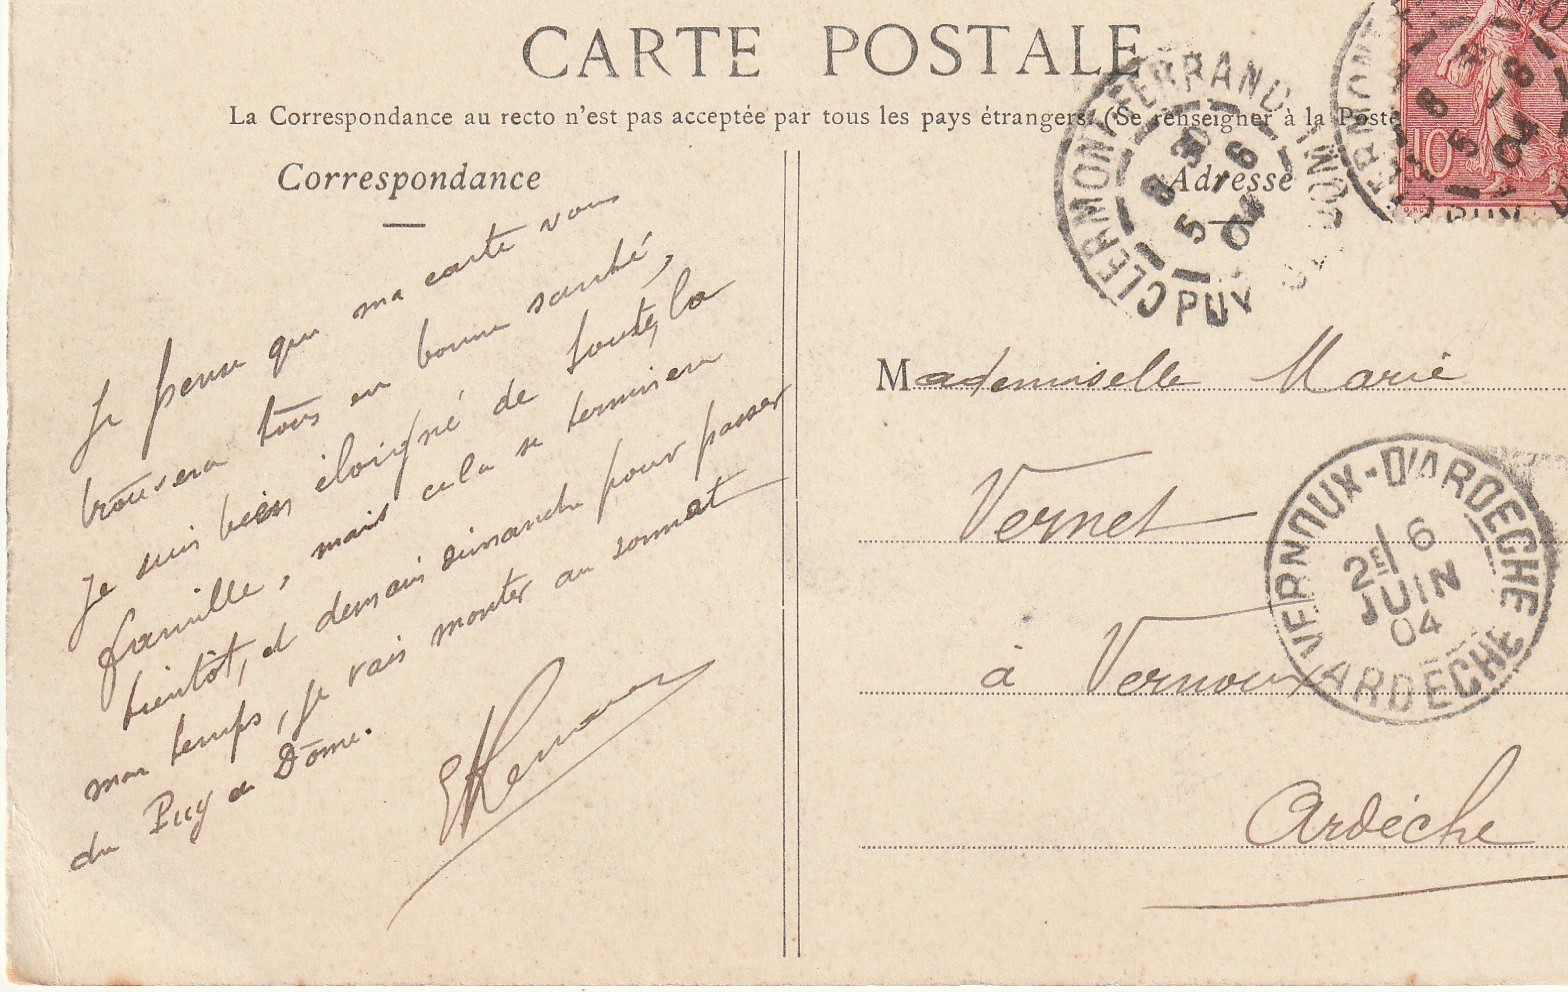 CARTE POSTALE
La Correspondance au recto n'est pas acceptée par tous les pays étrangers (Se renseigner à la Poste
Correspondance
Je pense que ma carte vous
trouvera tous en bonne santé,
je suis bien éloigné de toute la
famille, mais cela se terminera
bientôt, et demain dimanche pour passer
mon temps, je vais monter au sommet
du Puy de Dôme.
Adresse
CLERMONT-FERRAND
8 30
5 - 6
04
PUY DE DOME
10
Mademoiselle Marie
Vernet
à Vernoux
Ardèche
VERNOUX-D'ARDECHE
2E 6
JUIN
04
ARDECHE